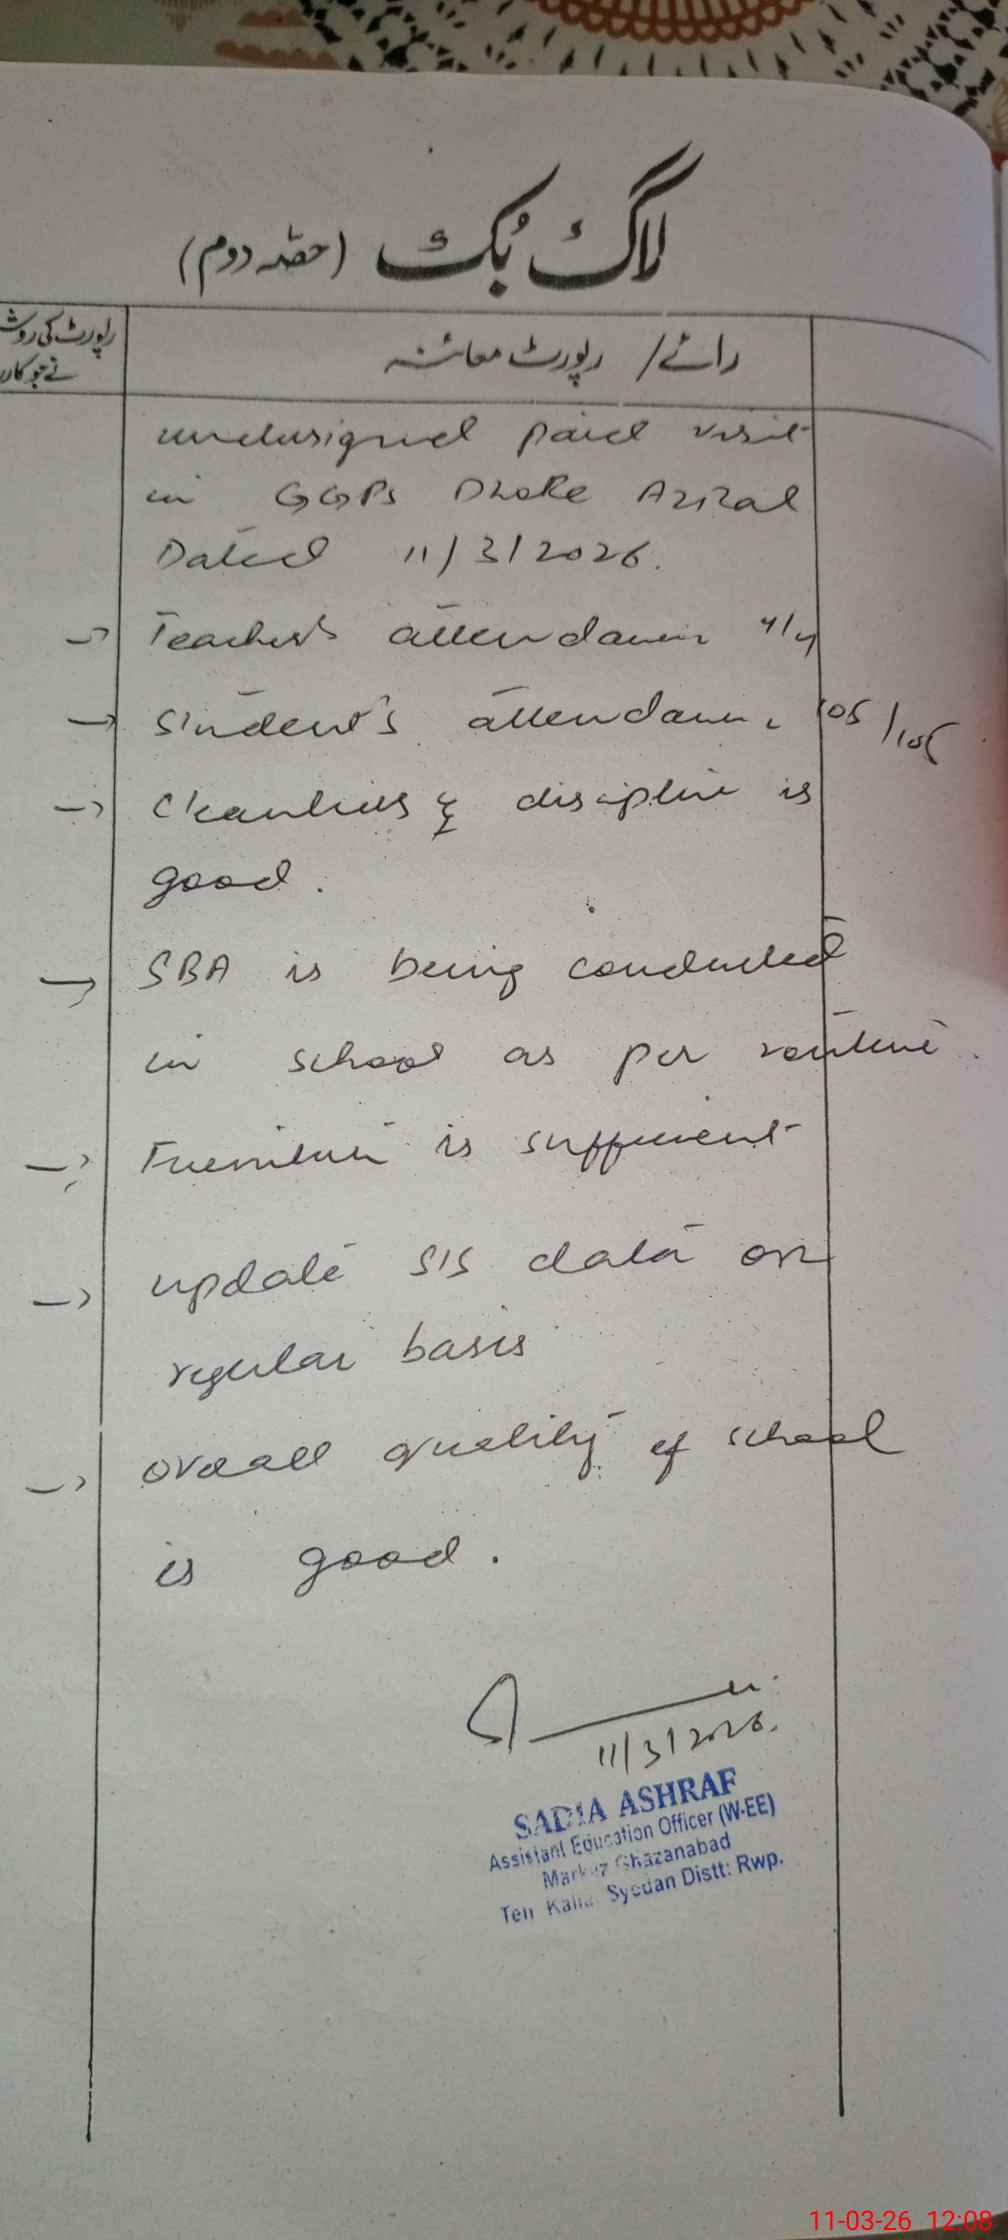 لاگ بُک (حصّہ دوم)
رائے / رپورٹ معائنہ
رپورٹ کی
نے جو
undersigned paid visit
in GGPS Dhoke Azizal
Dated 11/3/2026.
→ Teacher's attendance 4/4
→ Student's attendance 105/105
→ Cleanliness & discipline is
good.
→ SBA is being conducted
in school as per routine.
→ Furniture is sufficient
→ update SIS data on
regular basis
→ overall quality of school
is good.
11/3/2026.
SADIA ASHRAF
Assistant Education Officer (W-EE)
Markaz Ghazanabad
Teh Syedan Distt: Rwp.
11-03-26 12:08